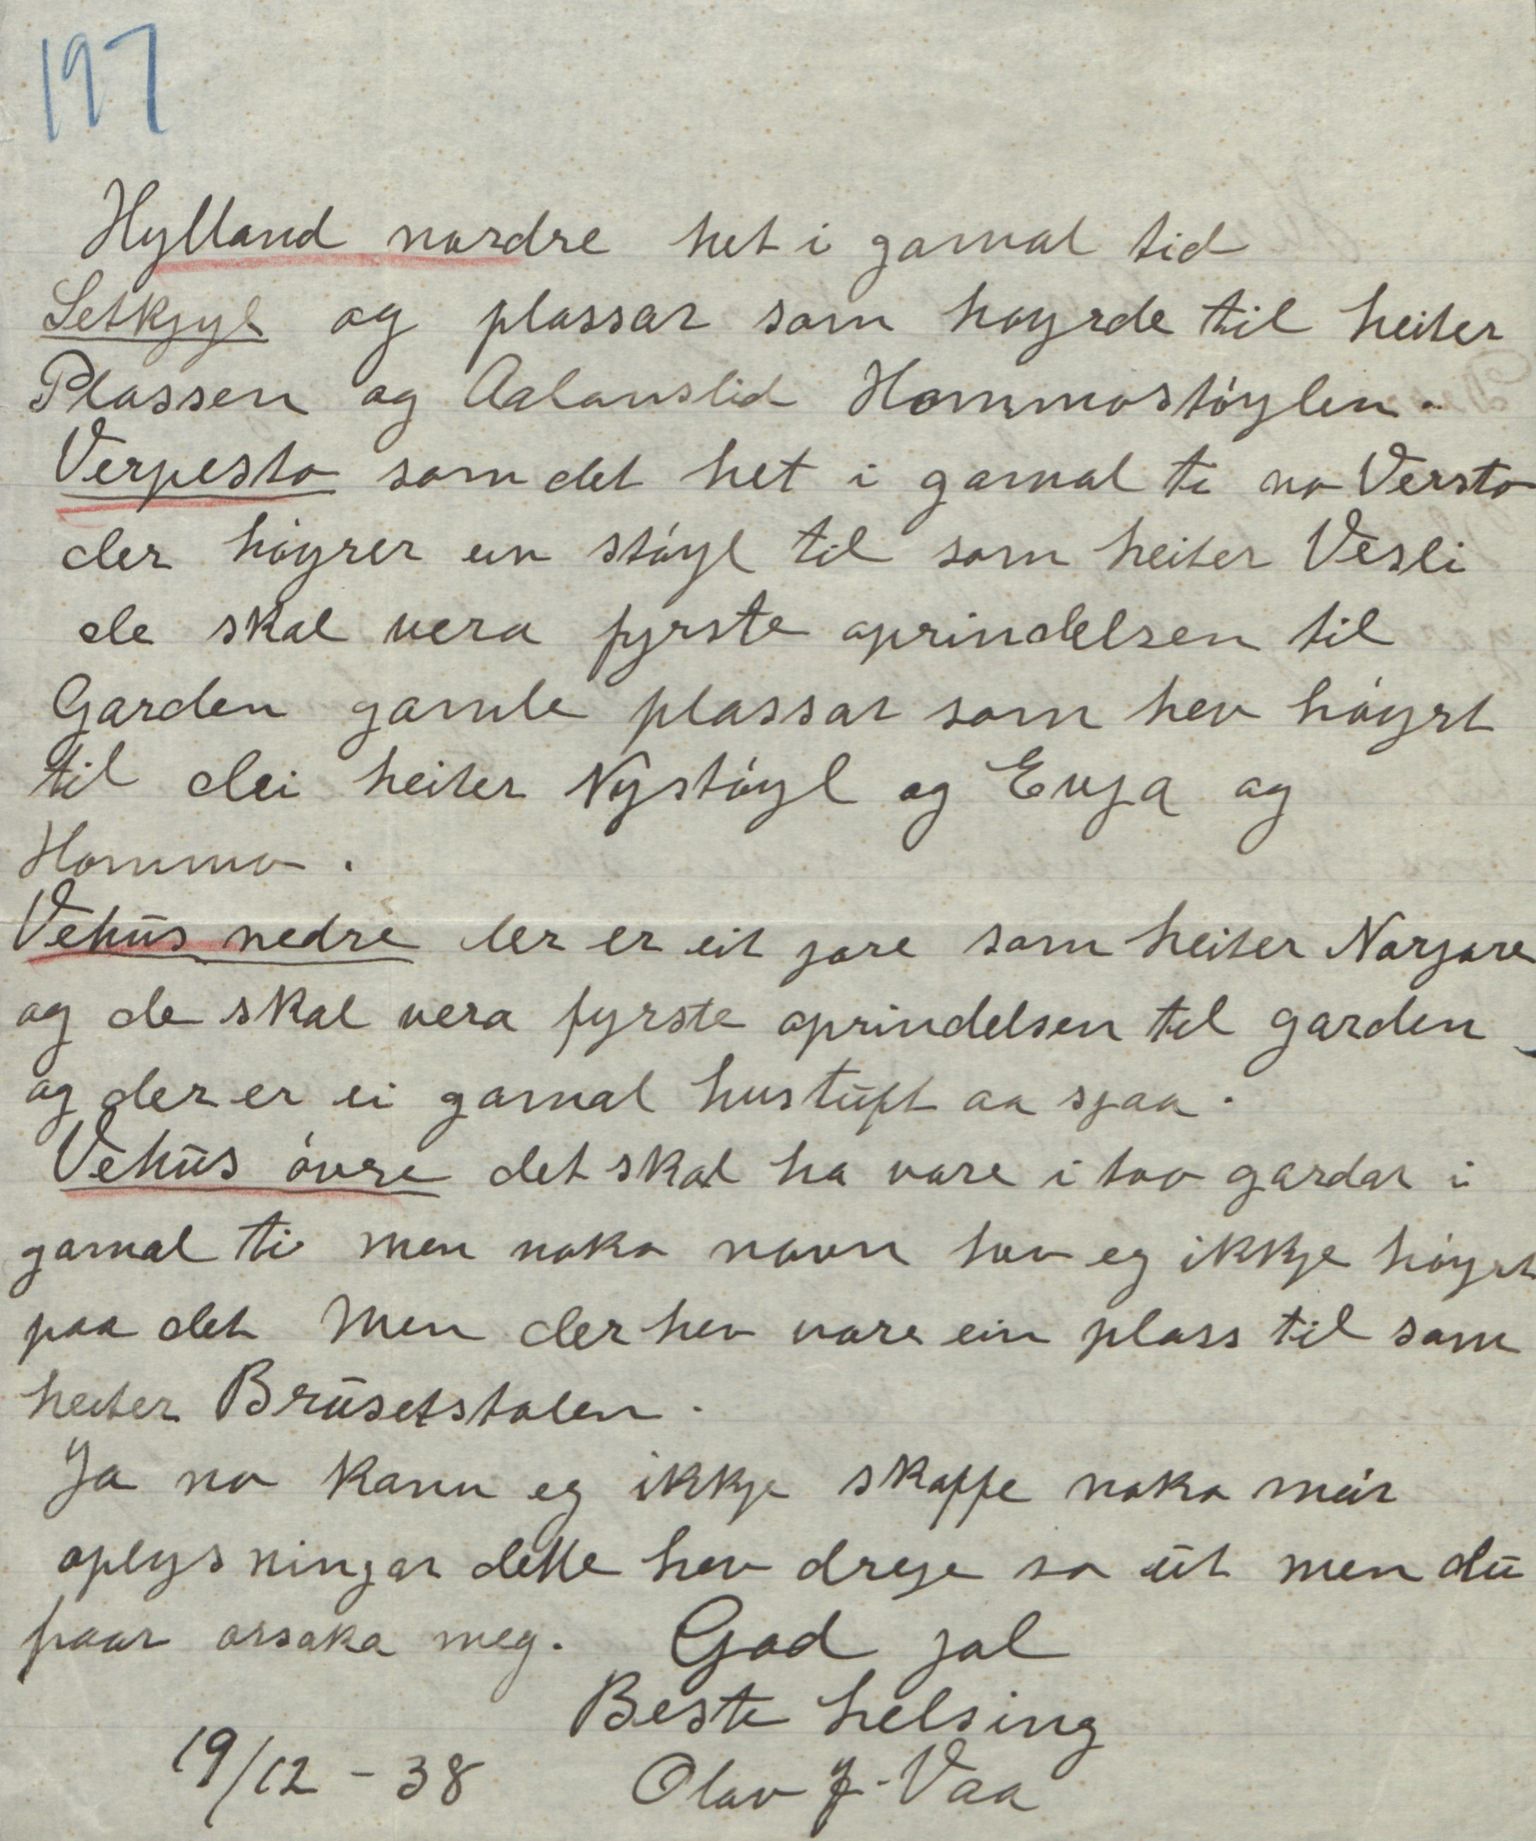 197
Hylland nordre het i gamal tid
Setkjyl og plassar som høyrde til heiter
Plassen og Aalamslid Hommostóylen.
Verpesto som det het i gamal ti no Versto
der hóyrer ein stóyl til som heiter Vesli
de skal vera fyrste oprindelsen til
Garden gamle plassar som hev hóyrt
til dei heiter Nystóyl og Evja og
Hommo.
Vehūs nedre der er eit jore som heiter Norjore
og de skal vera fyrste oprindelsen til garden
og der er ei gamal hustūft aa sjaa.
Vehūs óvre det skal ha vore i tvo gardar i
gamal ti men noko navn hev eg ikkje hóyrt
paa det Men der hev vore ein plass til som
heiter Brūsetstolen.
Ja no kann eg ikkje skaffe noko meir
oplysningar dette hev dreje so ūt men dū
faar orsaka meg. God jol
Beste helsing
19/12 - 38 Olav J. Vaa